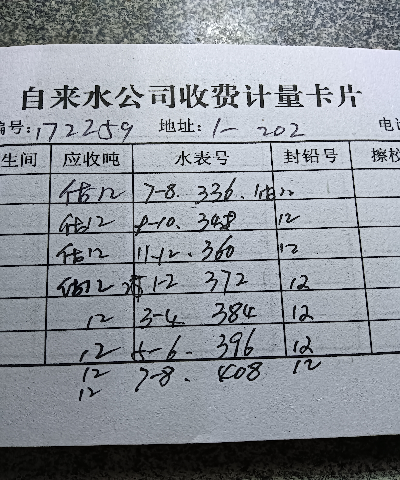 自来水公司收费计量卡片
编号:172259 地址:1-202 电话
生间 应收吨 水表号 封铅号 擦校
估12 7-8. 336. 估12
估12 9-10. 348 12
估12 11-12. 360 12
估12 1-2 372 12
12 3-4 384 12
12 5-6. 396 12
12 7-8. 408 12
12